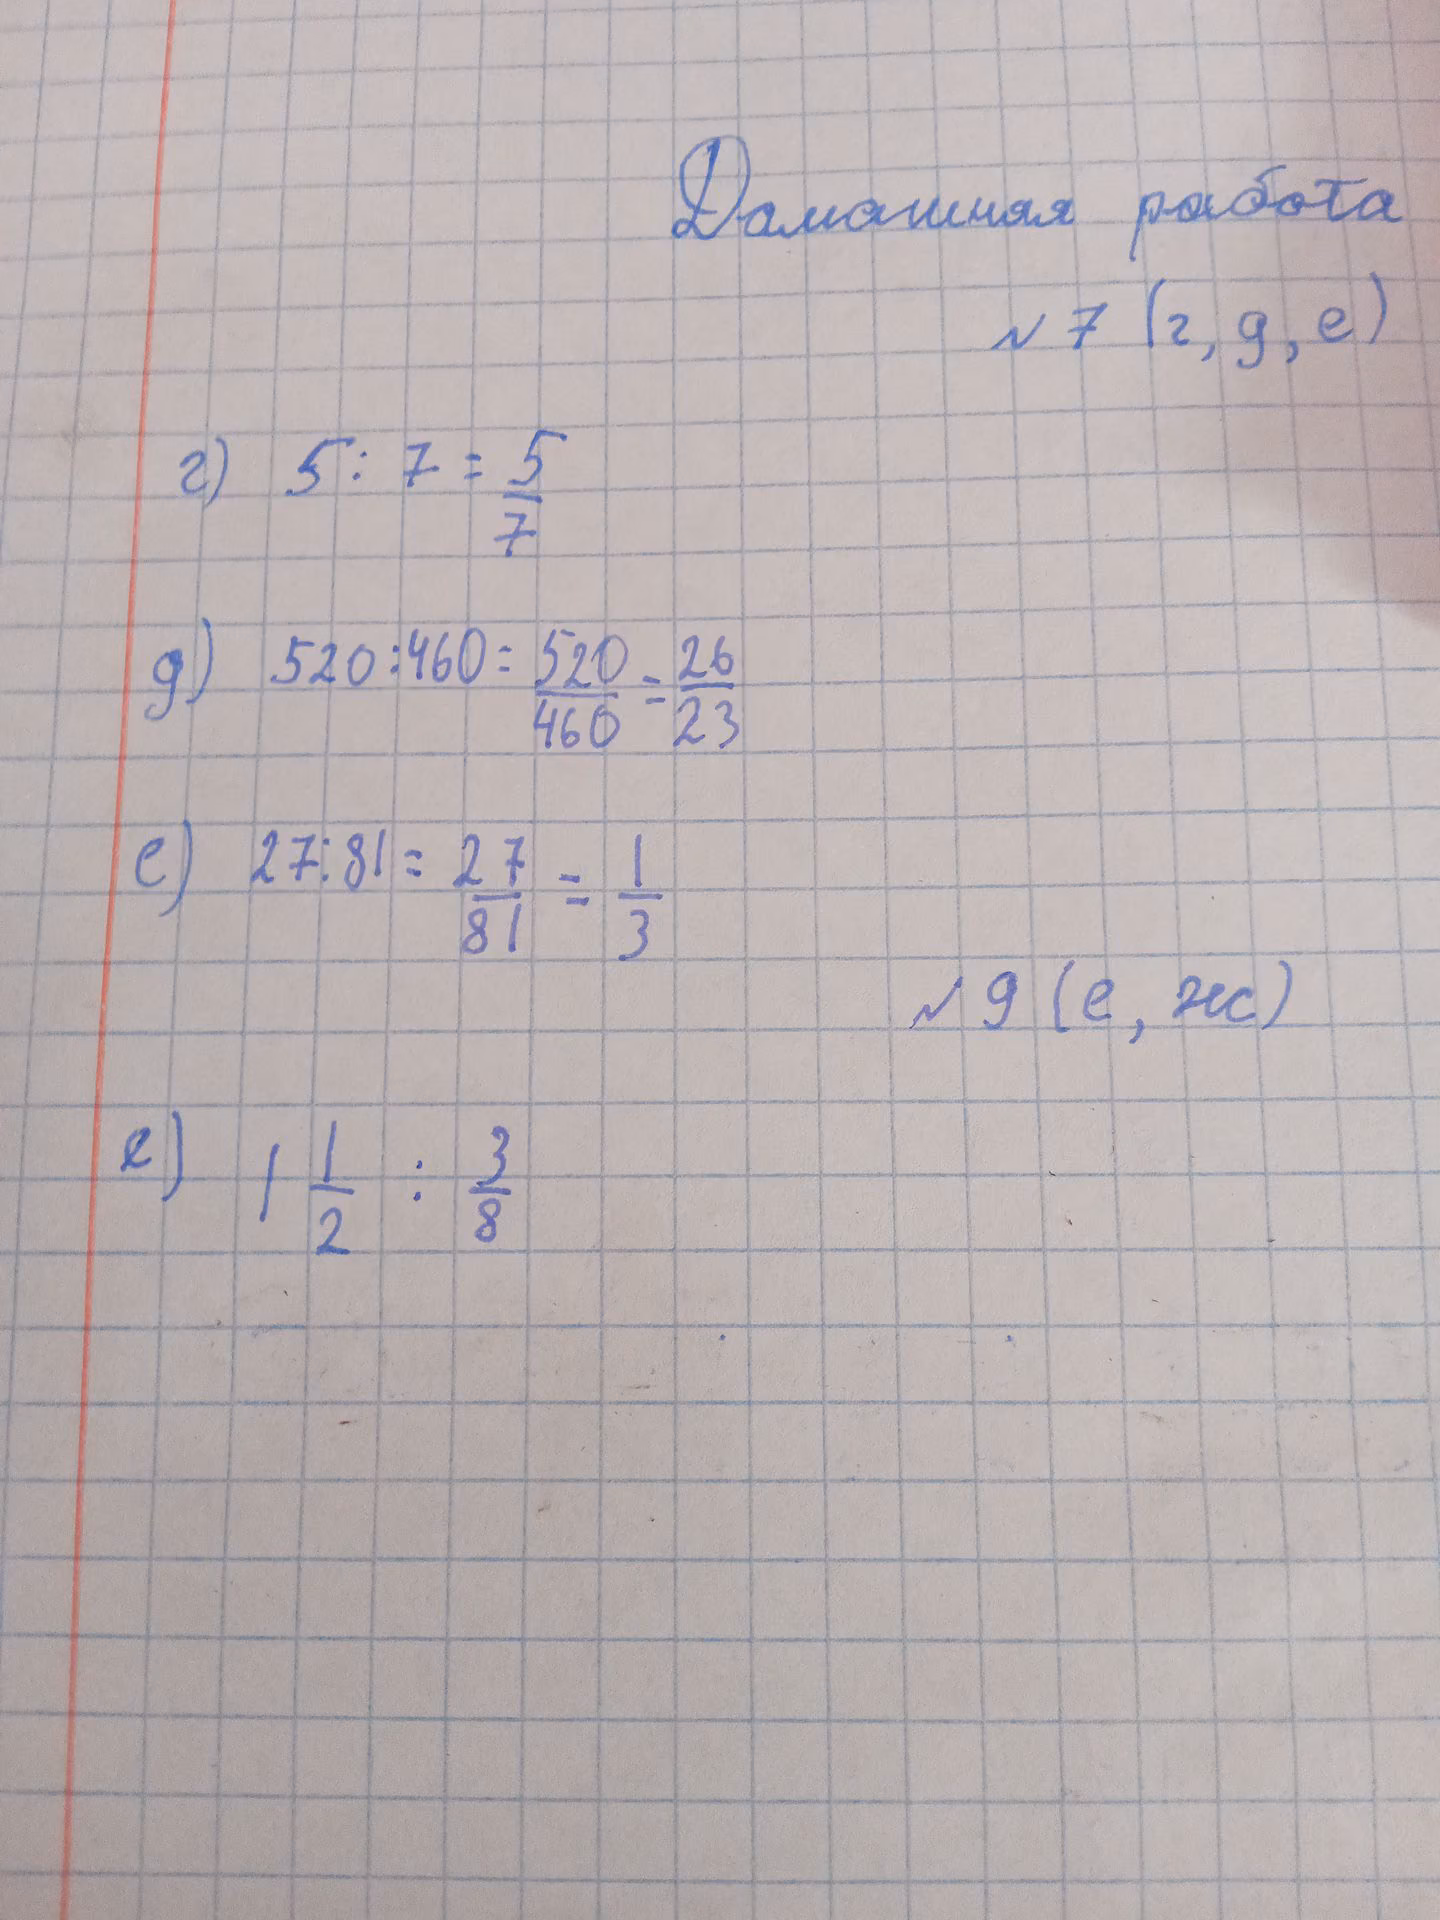 Домашняя работа
№ 7 (г, д, е)
г) 5 : 7 = 5/7
д) 520 : 460 = 520/460 = 26/23
е) 27 : 81 = 27/81 = 1/3
№ 9 (е, ж)
е) 1 1/2 : 3/8